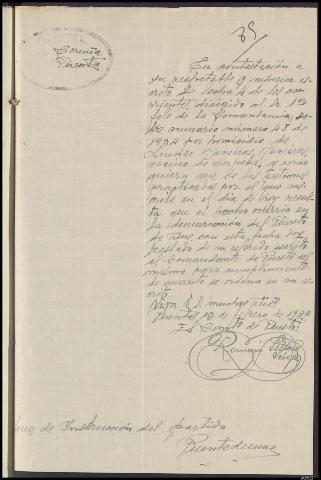 35
Coruña
Puente
En contestación a
su respetable y superior es-
crito de fecha 4 de los co-
rrientes dirigido al Sr 1er
Jefe de la Comandancia,
sumario número 43 de
1934 por homicidio de
vecino de y como
quiera que de las gestiones
practicadas por el que sus-
cribe en el día de hoy resul-
ta que el hecho ocurrió en
la demarcación del Puesto
de con esta fecha doy
traslado de su escrito
al Comandante de Puesto del
mismo para cumplimiento
de cuanto se ordena en su es-
crito.
Viva V. S. muchos años
Puentes de febrero de
El Comte de Puesto:
Romano
Juez de Instrucción del partido
Puentedeume